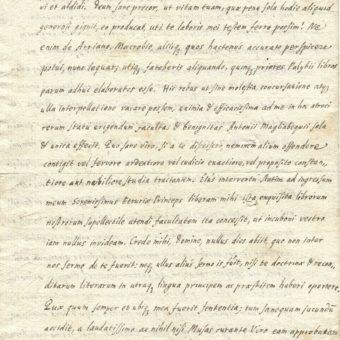 vi et addidi. Deum sane precor, ut vitam tuam, quæ pene sola hodie aliquid
generosi gignit, eo producat, uti te laboris mei testem ferre possim! Ne
enim de Arriano, Marcello, aliisq. quos hactenus accurate perspicere
potui, nunc loquar; uti fateberis aliquando, quinq. priores Polybii libros
parum adhuc elaboratos esse. His rebus ut sine molestia, concursatione atq.
ulla interpellatione vacare possem, eximia et efficacissima ad me in hoc atroci
rerum statu erigendum facultas et benignitas Antonii Magliabequii sola
et unica effecit. Eius sane viro, si a te discesseris neminem alium offendere
contigit vel fervore ardentiore vel iudicio exactiore, vel proposito constan-
tiore aut nobiliore studia tractantem. Eius interventu statim ad ingressum
meum Serenissimus Etruriæ Princeps libere mihi exquisita librorum
instructiorum supellectile utendi facultatem ita concessit, ut incubone vestro
iam nullus invideam. Crede mihi, Domine, nullus dies abiit, quo non inter
nos sermo de te fuerit: neq. ullus alius sermo is fuit, nisi te doctrinæ et recon-
ditarum literarum in utraq. lingua principem ac præsidem haberi oportere.
Quæ quum semper et ubiq. mea fuerit sententia; tum sane quam jucundum
accidit, a laudatissimo ac nihil nisi Musas curante Viro eam approbatam